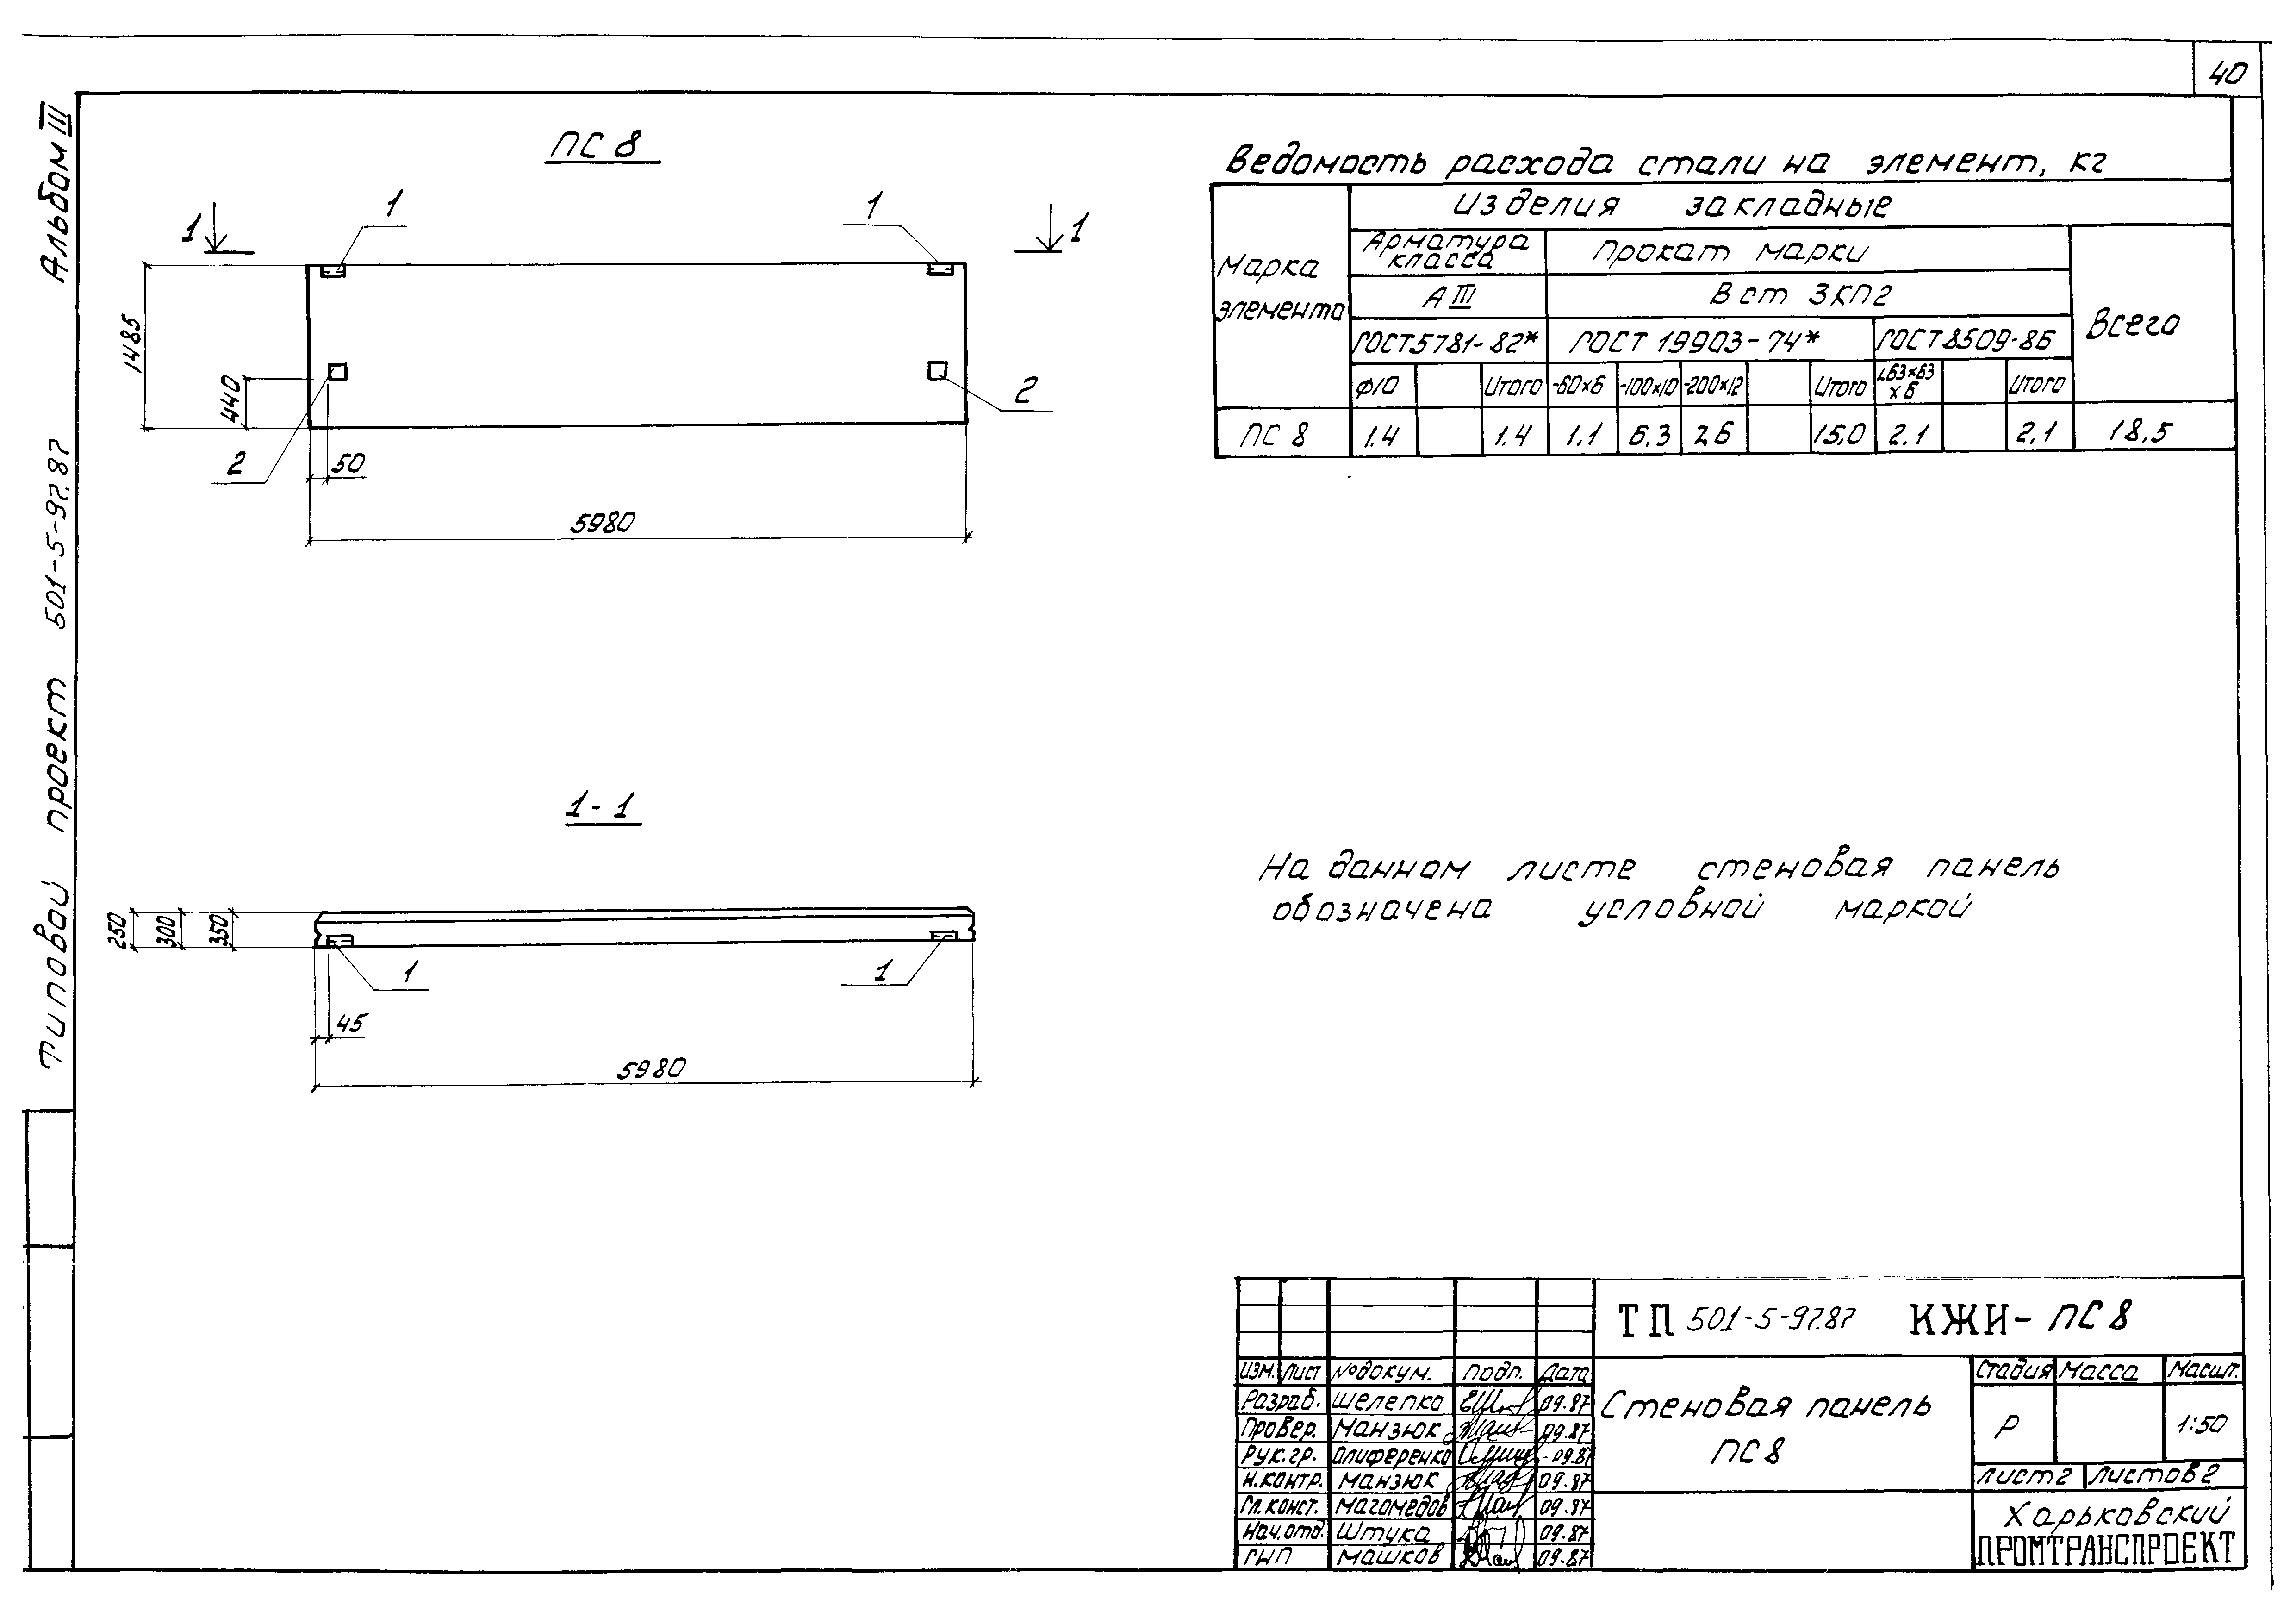 40
Альбом III
Типовой проект 501-5-97.87
ПС 8
1
1
1
1
1485
440
2
2
50
5980
1-1
250
300
350
1
1
45
5980
Ведомость расхода стали на элемент, кг
Марка элемента
Изделия закладные
Арматура класса
Прокат марки
Всего
А III
Вст 3кп2
ГОСТ 5781-82*
ГОСТ 19903-74*
ГОСТ 8509-86
φ10
Итого
-60×6
-100×10
-200×12
Итого
∟63×63×6
Итого
ПС 8
1.4
1.4
1.1
6.3
7.6
15.0
2.1
2.1
18,5
На данном листе стеновая панель
обозначена условной маркой
ТП 501-5-97.87 КЖИ- ПС 8
Изм. Лист №докум. Подп. Дата
Разраб. Шелепко 09.87
Провер. Манзюк 09.87
Рук.гр. Олиференко 09.87
Н.контр. Манзюк 09.87
Гл.конст. Магомедов 09.87
Нач.отд. Штука 09.87
ГИП Машков 09.87
Стеновая панель
ПС 8
Стадия Масса Масшт.
Р 1:50
Лист 2 Листов 2
Харьковский
ПРОМТРАНСПРОЕКТ